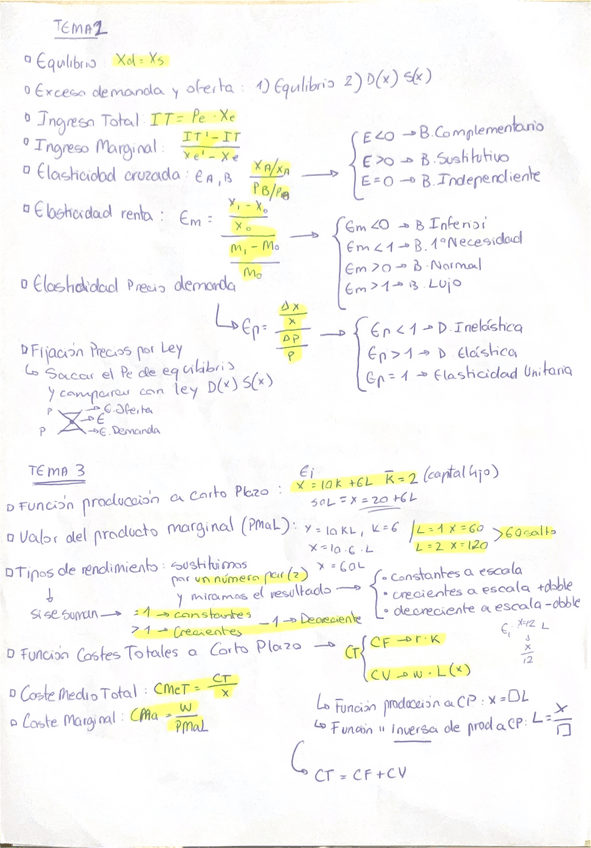 TEMA 2
Equilibrio Xd = Xs
Exceso demanda y oferta: 1) Equilibrio 2) D(x) S(x)
Ingreso Total: IT = Pe · Xe
Ingreso Marginal: IT' - IT / Xe' - Xe
Elasticidad cruzada: EA,B XA/XA / PB/PB
E<0 → B. Complementario
E>0 → B. Sustitutivo
E=0 → B. Independiente
Elasticidad renta: Em = X1 - X0 / X0 / M1 - M0 / M0
Em <0 → B Inferior
Em <1 → B. 1º Necesidad
Em >0 → B. Normal
Em >1 → B. Lujo
Elasticidad Precio demanda
Ep = ΔX / X / ΔP / P
Ep <1 → D. Inelástica
Ep >1 → D. Elástica
Ep = 1 → Elasticidad Unitaria
Fijación Precios por Ley
Sacar el Pe de equilibrio
y comparar con ley D(x) S(x)
P → E. Oferta
→ E
P → E. Demanda
TEMA 3
Función producción a Corto Plazo: Ej X = 10K + 6L K̅ = 2 (capital fijo)
SOL = X = 20 + 6L
Valor del producto marginal (PMaL): X = 10KL, K = 6 / L = 1 X = 60 > 60 salto
X = 10 · 6 · L L = 2 X = 120
X = 60L
Tipos de rendimiento: sustituimos
por un número par (2)
y miramos el resultado →
· constantes a escala
· crecientes a escala + doble
· decreciente a escala - doble
si se suman → = 1 → constantes
> 1 → Crecientes - 1 → Decreciente
Función Costes Totales a Corto Plazo → CT
CF → r · K
CV → w · L(x)
X=12 L
X
12
Coste Medio Total: CMeT = CT / X
Coste Marginal: CMa = W / PMaL
Función producción a CP: X = □L
Función " Inversa de prod a CP: L = X / □
CT = CF + CV